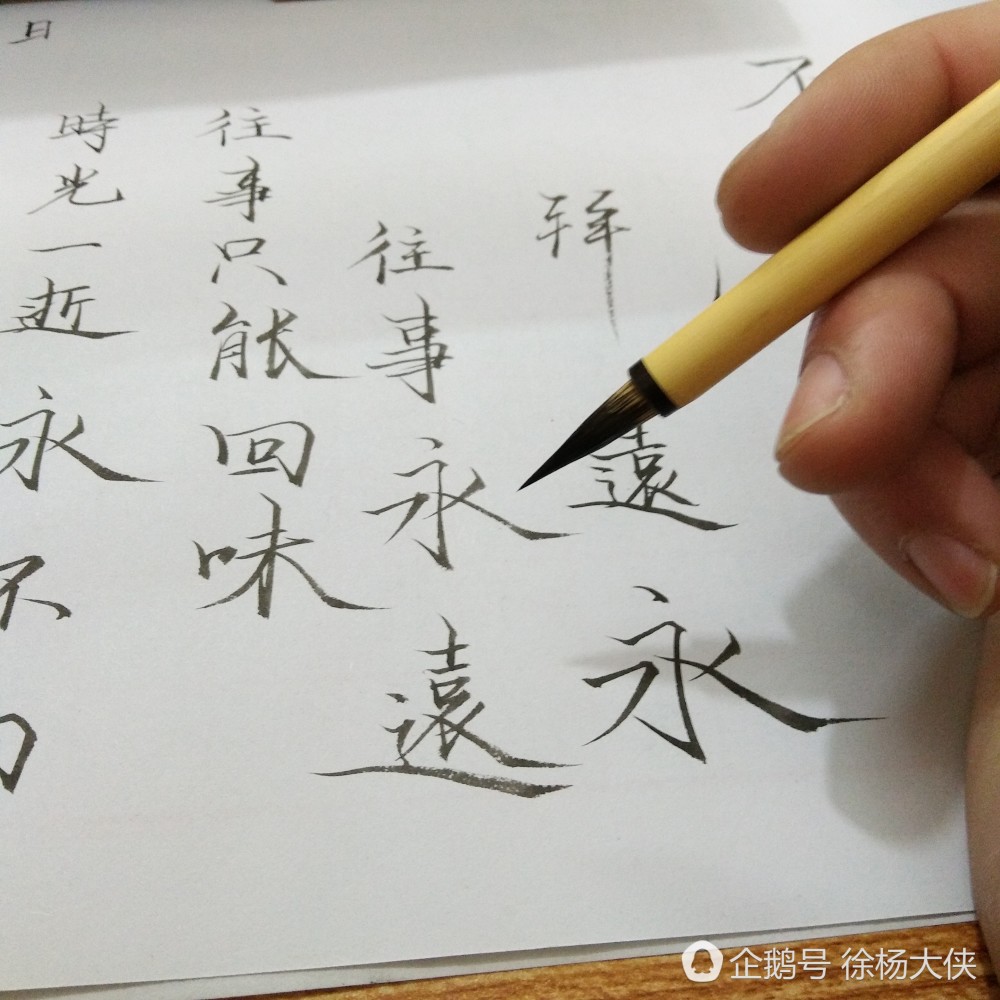 旦
時光一逝永不
往事只能回味
往事永遠
遠永
不
企鹅号 徐杨大侠